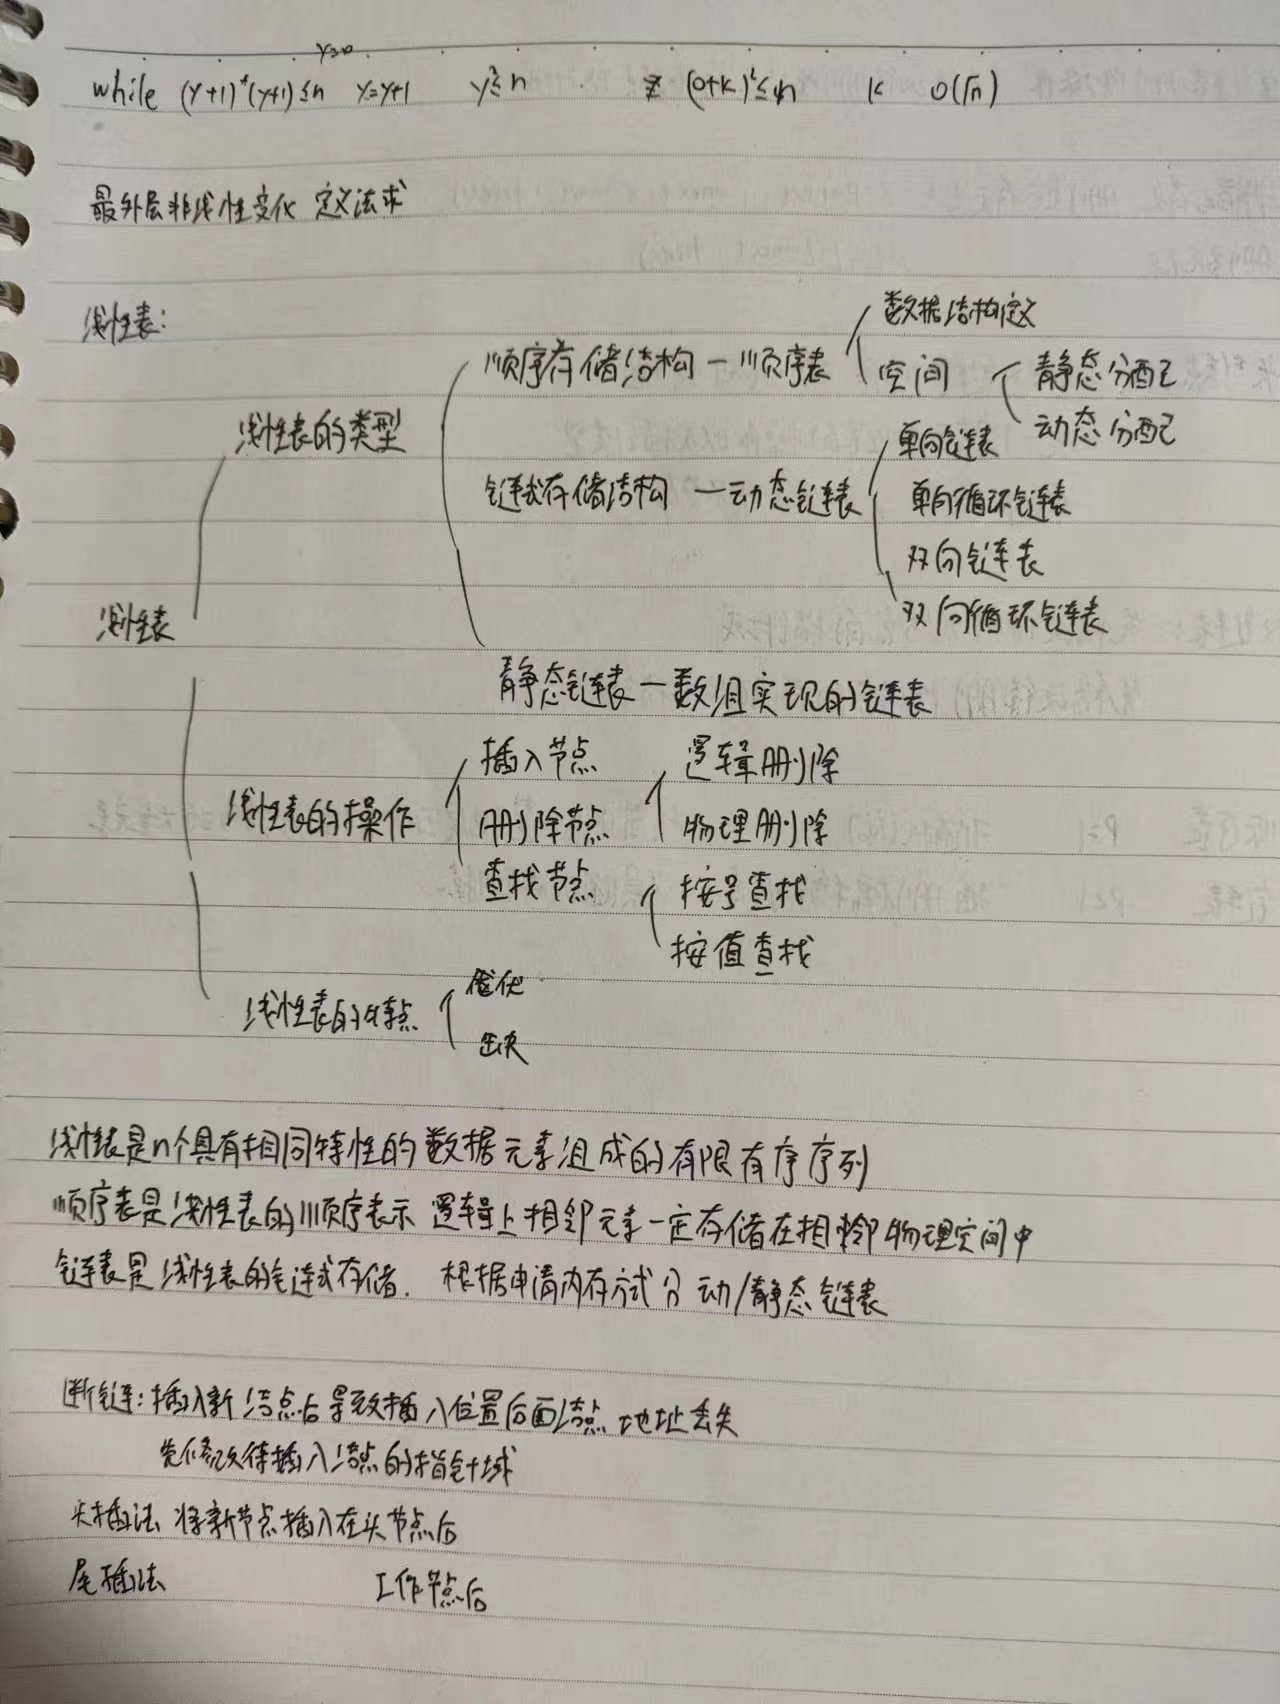 y=0
while (y+1)*(y+1)≤n y=y+1 y²≤n (0+k)²≤n k O(√n)
最外层非线性变化 定义法求
线性表:
数据结构定义
顺序存储结构 — 顺序表
空间
静态分配
动态分配
线性表的类型
单向链表
链式存储结构 — 动态链表
单向循环链表
双向链表
双向循环链表
线性表
静态链表 — 数组实现的链表
插入节点
逻辑删除
线性表的操作
删除节点
物理删除
查找节点
按号查找
按值查找
线性表的特点
优
缺
线性表是n个具有相同特性的数据元素组成的有限有序序列
顺序表是线性表的顺序表示 逻辑上相邻元素一定存储在相邻物理空间中
链表是线性表的链式存储. 根据申请内存方式分 动/静态链表
断链: 插入新结点后导致插入位置后面结点地址丢失
先修改待插入结点的指针域
头插法 将新节点插入在头节点后
尾插法 工作节点后